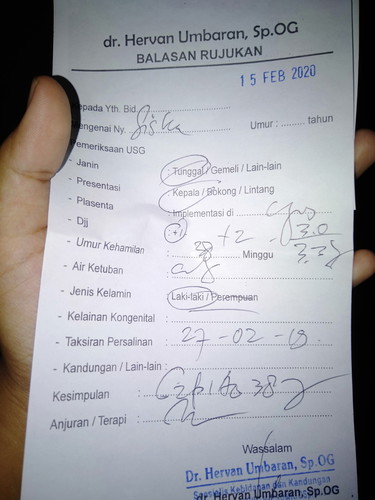 dr. Hervan Umbaran, Sp.OG
BALASAN RUJUKAN
15 FEB 2020
epada Yth. Bid. ..............................
engenai Ny. Siska Umur : ......... tahun
Pemeriksaan USG
- Janin : Tunggal / Gemeli / Lain-lain
- Presentasi : Kepala / Bokong / Lintang
- Plasenta : Implementasi di
- Djj : (+)
- Umur Kehamilan : 38 Minggu
- Air Ketuban :
- Jenis Kelamin : Laki-laki / Perempuan
- Kelainan Kongenital :
- Taksiran Persalinan : 27-02-
- Kandungan / Lain-lain :
Kesimpulan :
Anjuran / Terapi :
Wassalam
Dr. Hervan Umbaran, Sp.OG
Spesialis Kebidanan dan Kandungan
dr. Hervan Umbaran, Sp.OG